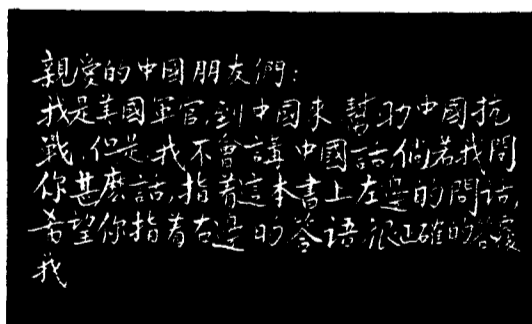 親愛的中國朋友們:
我是美國軍官,到中国來幫助中國抗
戰,但是,我不會講中國話,倘若我問
你甚麽話,指着這本書上左邊的問话,
希望你指着右邊的答语,很正確的答覆
我